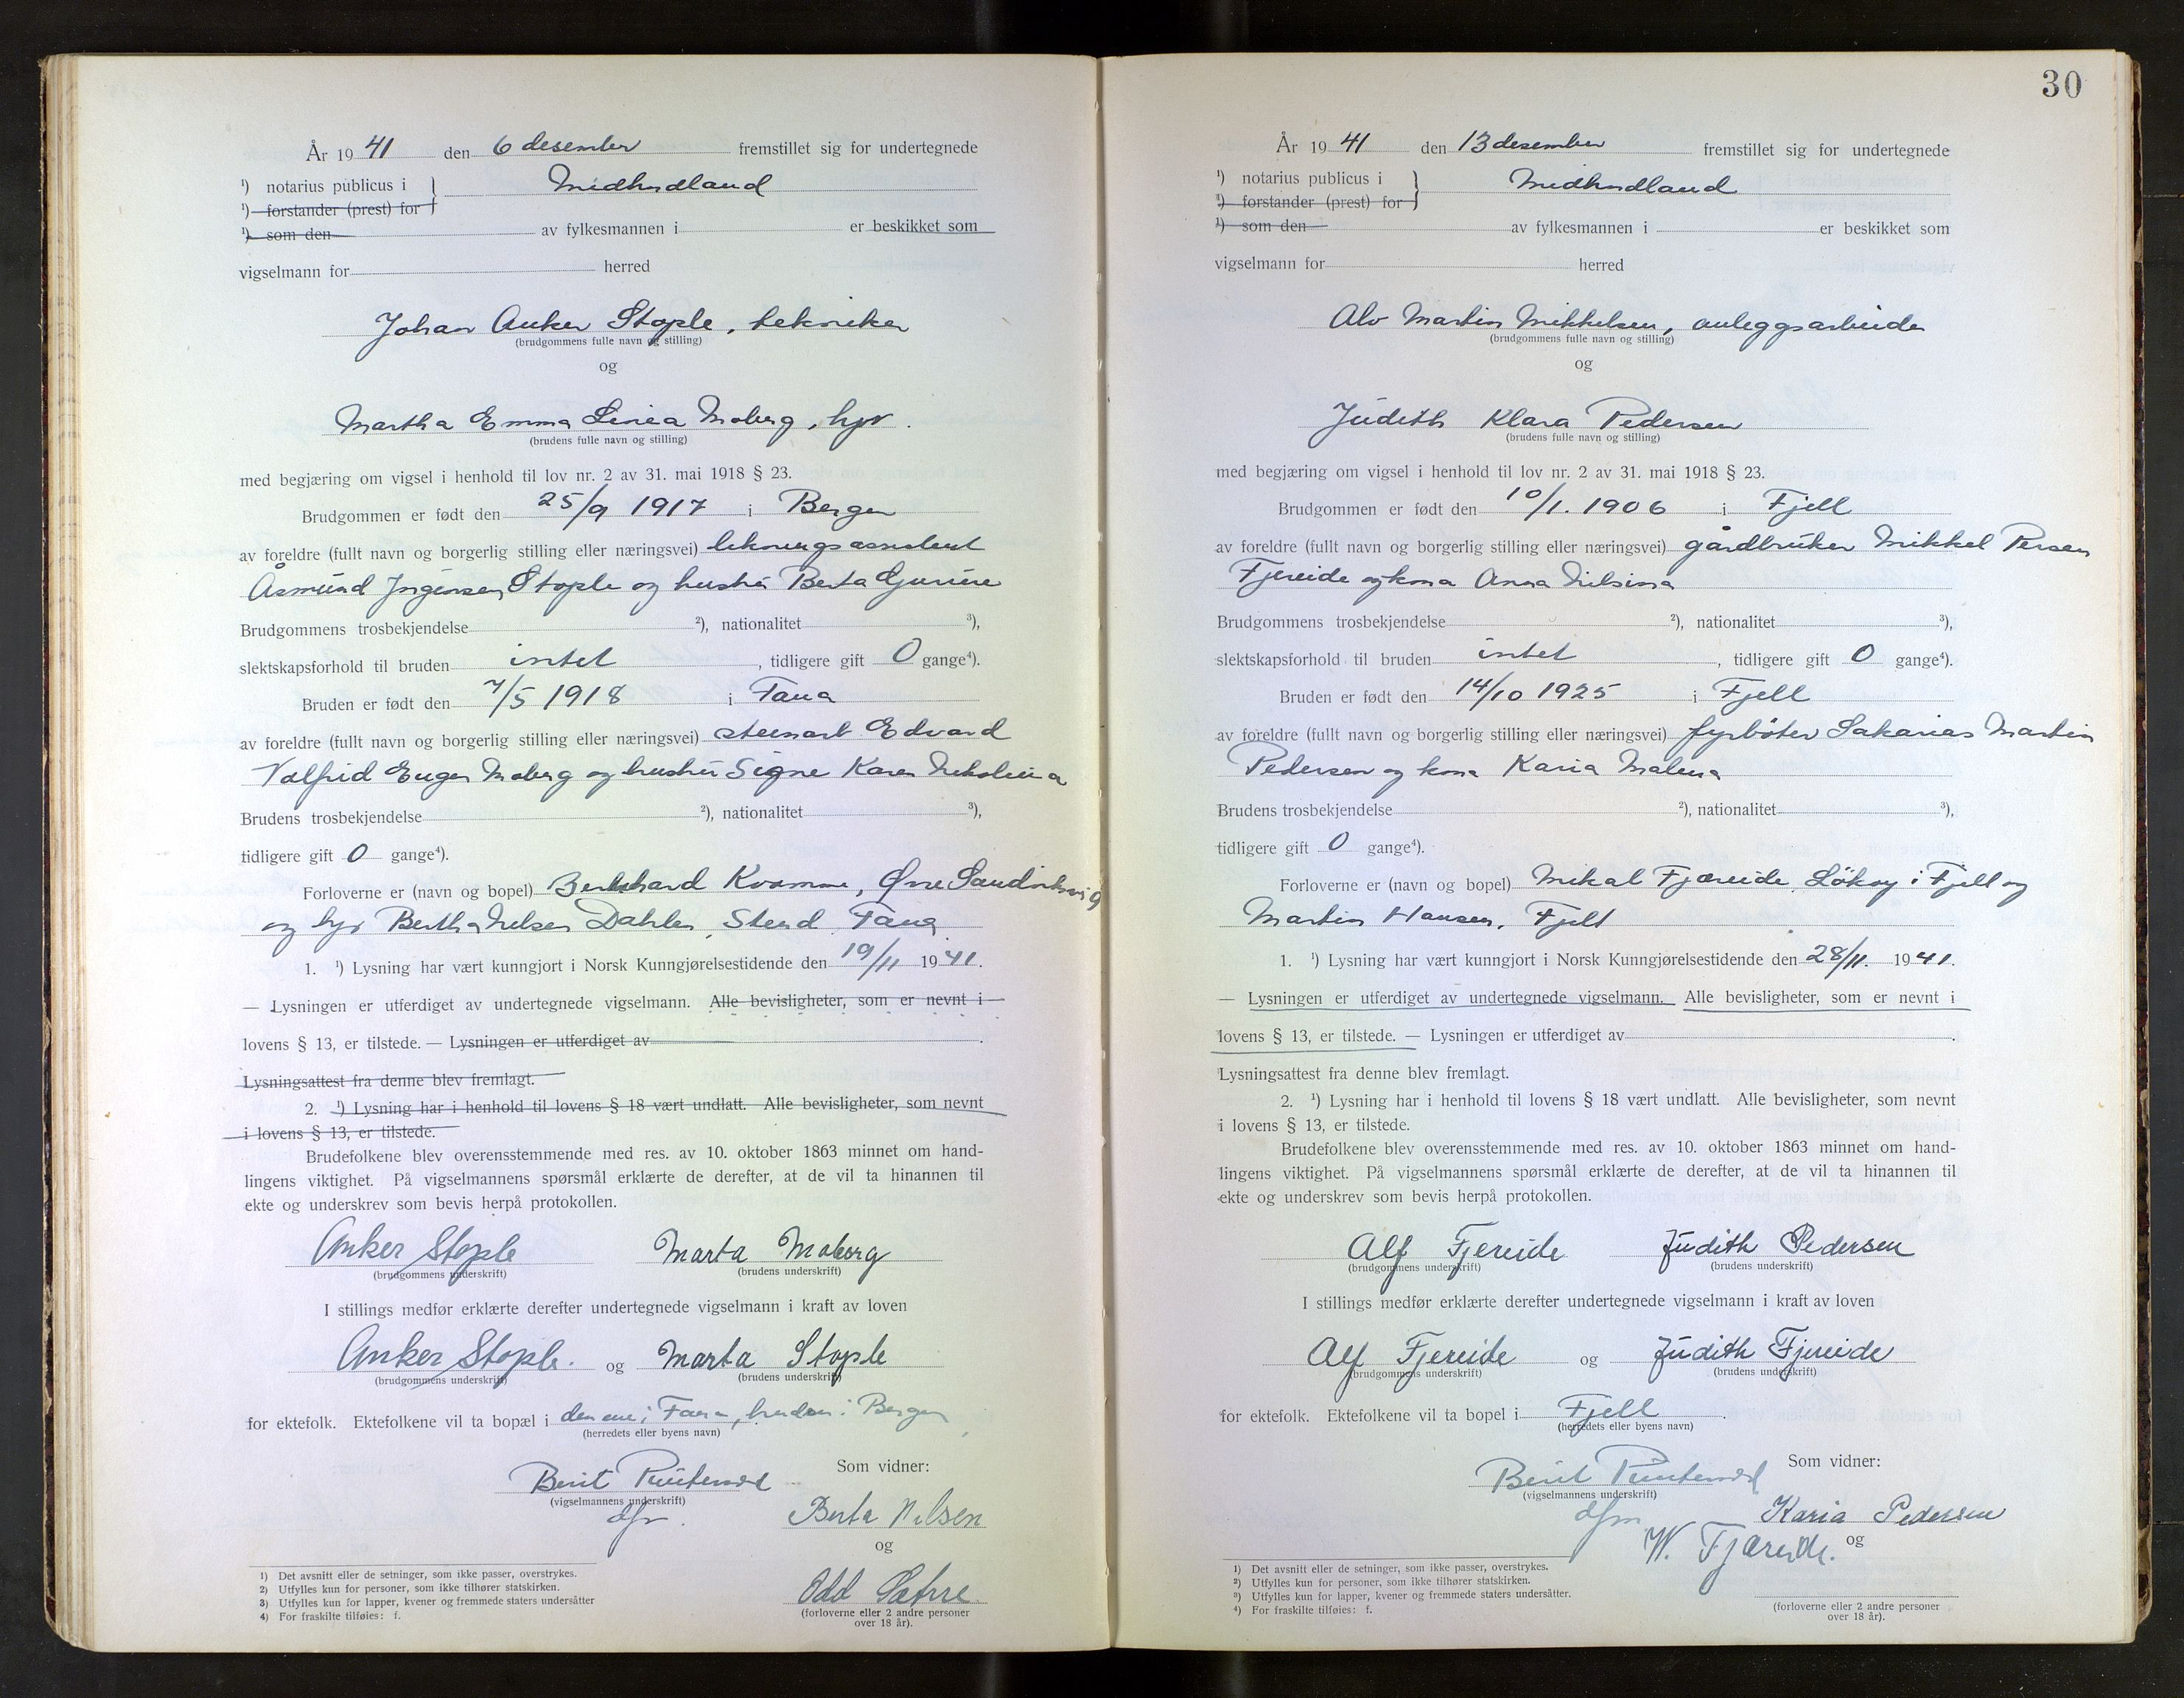 År 19 41 den 6 desember fremstillet sig for undertegnede
¹) notarius publicus i } Midhordland
¹) forstander (prest) for
¹) som den av fylkesmannen i er beskikket som
vigselmann for herred
Johan Anker Stople, tekniker
(brudgommens fulle navn og stilling)
og
Martha Emma Linea Moberg, hjv.
(brudens fulle navn og stilling)
med begjæring om vigsel i henhold til lov nr. 2 av 31. mai 1918 § 23.
Brudgommen er født den 25/9 1917 i Bergen
av foreldre (fullt navn og borgerlig stilling eller næringsvei) likningsassistent
Åsmund Jørgensen Stople og hustru Berta Gurine
Brudgommens trosbekjendelse ²), nationalitet ³),
slektskapsforhold til bruden intet , tidligere gift 0 gange⁴).
Bruden er født den 7/5 1918 i Fana
av foreldre (fullt navn og borgerlig stilling eller næringsvei) stuinart Edvard
Valfrid Eugen Moberg og hustru Signe Karen Nikoleina
Brudens trosbekjendelse ²), nationalitet ³),
tidligere gift 0 gange⁴).
Forloverne er (navn og bopel) Bernhard Kvamme, Øvre
og hjv Bertha Nilsen Dahlen, Stend, Fana
1. ¹) Lysning har vært kunngjort i Norsk Kunngjørelsestidende den 19/11 1941.
— Lysningen er utferdiget av undertegnede vigselmann. Alle bevisligheter, som er nevnt i
lovens § 13, er tilstede. — Lysningen er utferdiget av .
Lysningsattest fra denne blev fremlagt.
2. ¹) Lysning har i henhold til lovens § 18 vært undlatt. Alle bevisligheter, som nevnt
i lovens § 13, er tilstede.
Brudefolkene blev overensstemmende med res. av 10. oktober 1863 minnet om hand-
lingens viktighet. På vigselmannens spørsmål erklærte de derefter, at de vil ta hinannen til
ekte og underskrev som bevis herpå protokollen.
Anker Stople Marta Moberg
(brudgommens underskrift) (brudens underskrift)
I stillings medfør erklærte derefter undertegnede vigselmann i kraft av loven
Anker Stople. og Marta Stople
(brudgommens underskrift) (brudens underskrift)
for ektefolk. Ektefolkene vil ta bopæl i den ene i Fana, bruden i Bergen
(herredets eller byens navn)
Berit
(vigselmannens underskrift)
dfm.
Som vidner:
Berta Nilsen
og
Odd Sætre
(forloverne eller 2 andre personer
over 18 år).
1) Det avsnitt eller de setninger, som ikke passer, overstrykes.
2) Utfylles kun for personer, som ikke tilhører statskirken.
3) Utfylles kun for lapper, kvener og fremmede staters undersåtter
4) For fraskilte tilføies: f.
30
År 19 41 den 13 desember fremstillet sig for undertegnede
¹) notarius publicus i } Midhordland
¹) forstander (prest) for
¹) som den av fylkesmannen i er beskikket som
vigselmann for herred
Alv Martin Mikkelsen, anleggsarbeider
(brudgommens fulle navn og stilling)
og
Judith Klara Pedersen
(brudens fulle navn og stilling)
med begjæring om vigsel i henhold til lov nr. 2 av 31. mai 1918 § 23.
Brudgommen er født den 10/1. 1906 i Fjell
av foreldre (fullt navn og borgerlig stilling eller næringsvei) gårdbruker Mikkel Persen
Fjereide og kona Anna Nilsina
Brudgommens trosbekjendelse ²), nationalitet ³),
slektskapsforhold til bruden intet , tidligere gift 0 gange⁴).
Bruden er født den 14/10 1925 i Fjell
av foreldre (fullt navn og borgerlig stilling eller næringsvei) fyrbøter Sakarias Martin
Pedersen og kona Karia Malena
Brudens trosbekjendelse ²), nationalitet ³),
tidligere gift 0 gange⁴).
Forloverne er (navn og bopel) Mikal Fjæreide, Løkøy i Fjell og
Martin Hansen, Fjell
1. ¹) Lysning har vært kunngjort i Norsk Kunngjørelsestidende den 28/11. 1941.
— Lysningen er utferdiget av undertegnede vigselmann. Alle bevisligheter, som er nevnt i
lovens § 13, er tilstede. — Lysningen er utferdiget av .
Lysningsattest fra denne blev fremlagt.
2. ¹) Lysning har i henhold til lovens § 18 vært undlatt. Alle bevisligheter, som nevnt
i lovens § 13, er tilstede.
Brudefolkene blev overensstemmende med res. av 10. oktober 1863 minnet om hand-
lingens viktighet. På vigselmannens spørsmål erklærte de derefter, at de vil ta hinannen til
ekte og underskrev som bevis herpå protokollen.
Alf Fjereide Judith Pedersen
(brudgommens underskrift) (brudens underskrift)
I stillings medfør erklærte derefter undertegnede vigselmann i kraft av loven
Alf Fjereide og Judith Fjereide
(brudgommens underskrift) (brudens underskrift)
for ektefolk. Ektefolkene vil ta bopel i Fjell .
(herredets eller byens navn)
Berit
(vigselmannens underskrift)
dfm
Som vidner:
Karia Pedersen
og
W. Fjæreide.
(forloverne eller 2 andre personer
over 18 år).
¹) Det avsnitt eller de setninger, som ikke passer, overstrykes.
²) Utfylles kun for personer, som ikke tilhører statskirken.
³) Utfylles kun for lapper, kvener og fremmede staters undersåtter.
⁴) For fraskilte tilføies: f.